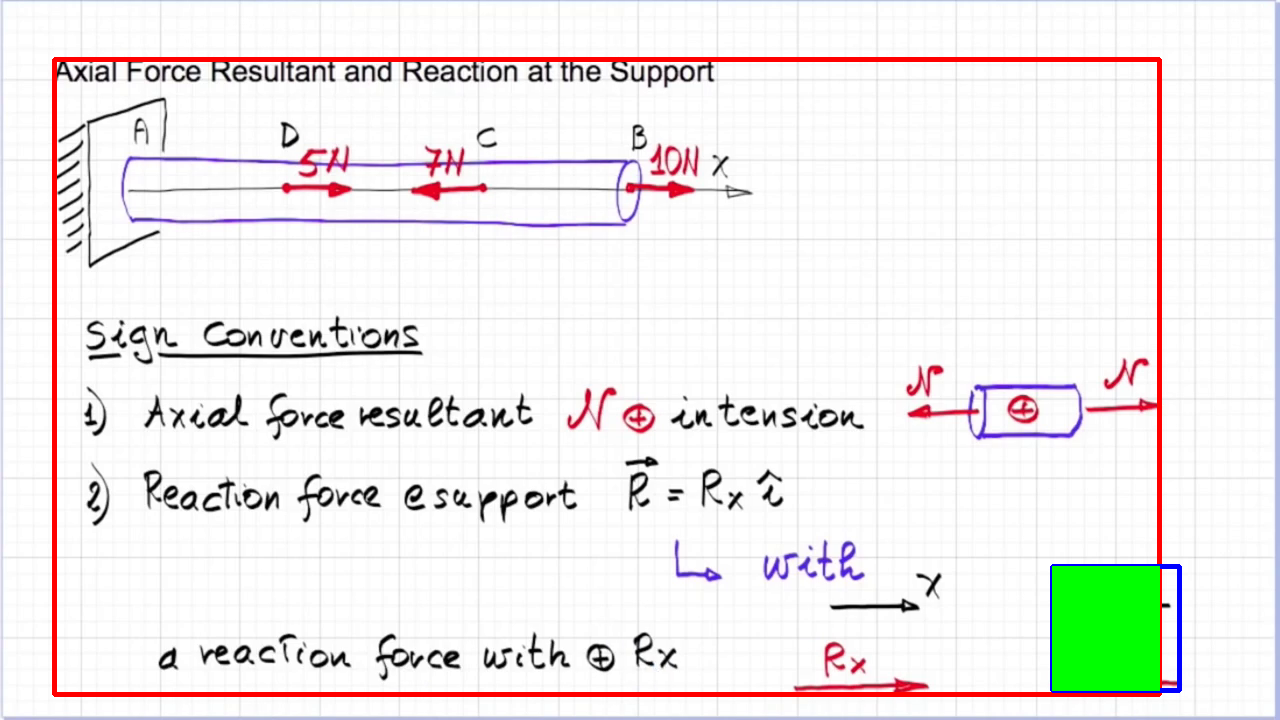 Axial Force Resultant and Reaction at the Support
A D C B
5N 7N 10N X
Sign Conventions
N N
1) Axial force resultant N ⊕ in tension ⊕
2) Reaction force @ support R = Rx î
↳ with
X
a reaction force with ⊕ Rx Rx